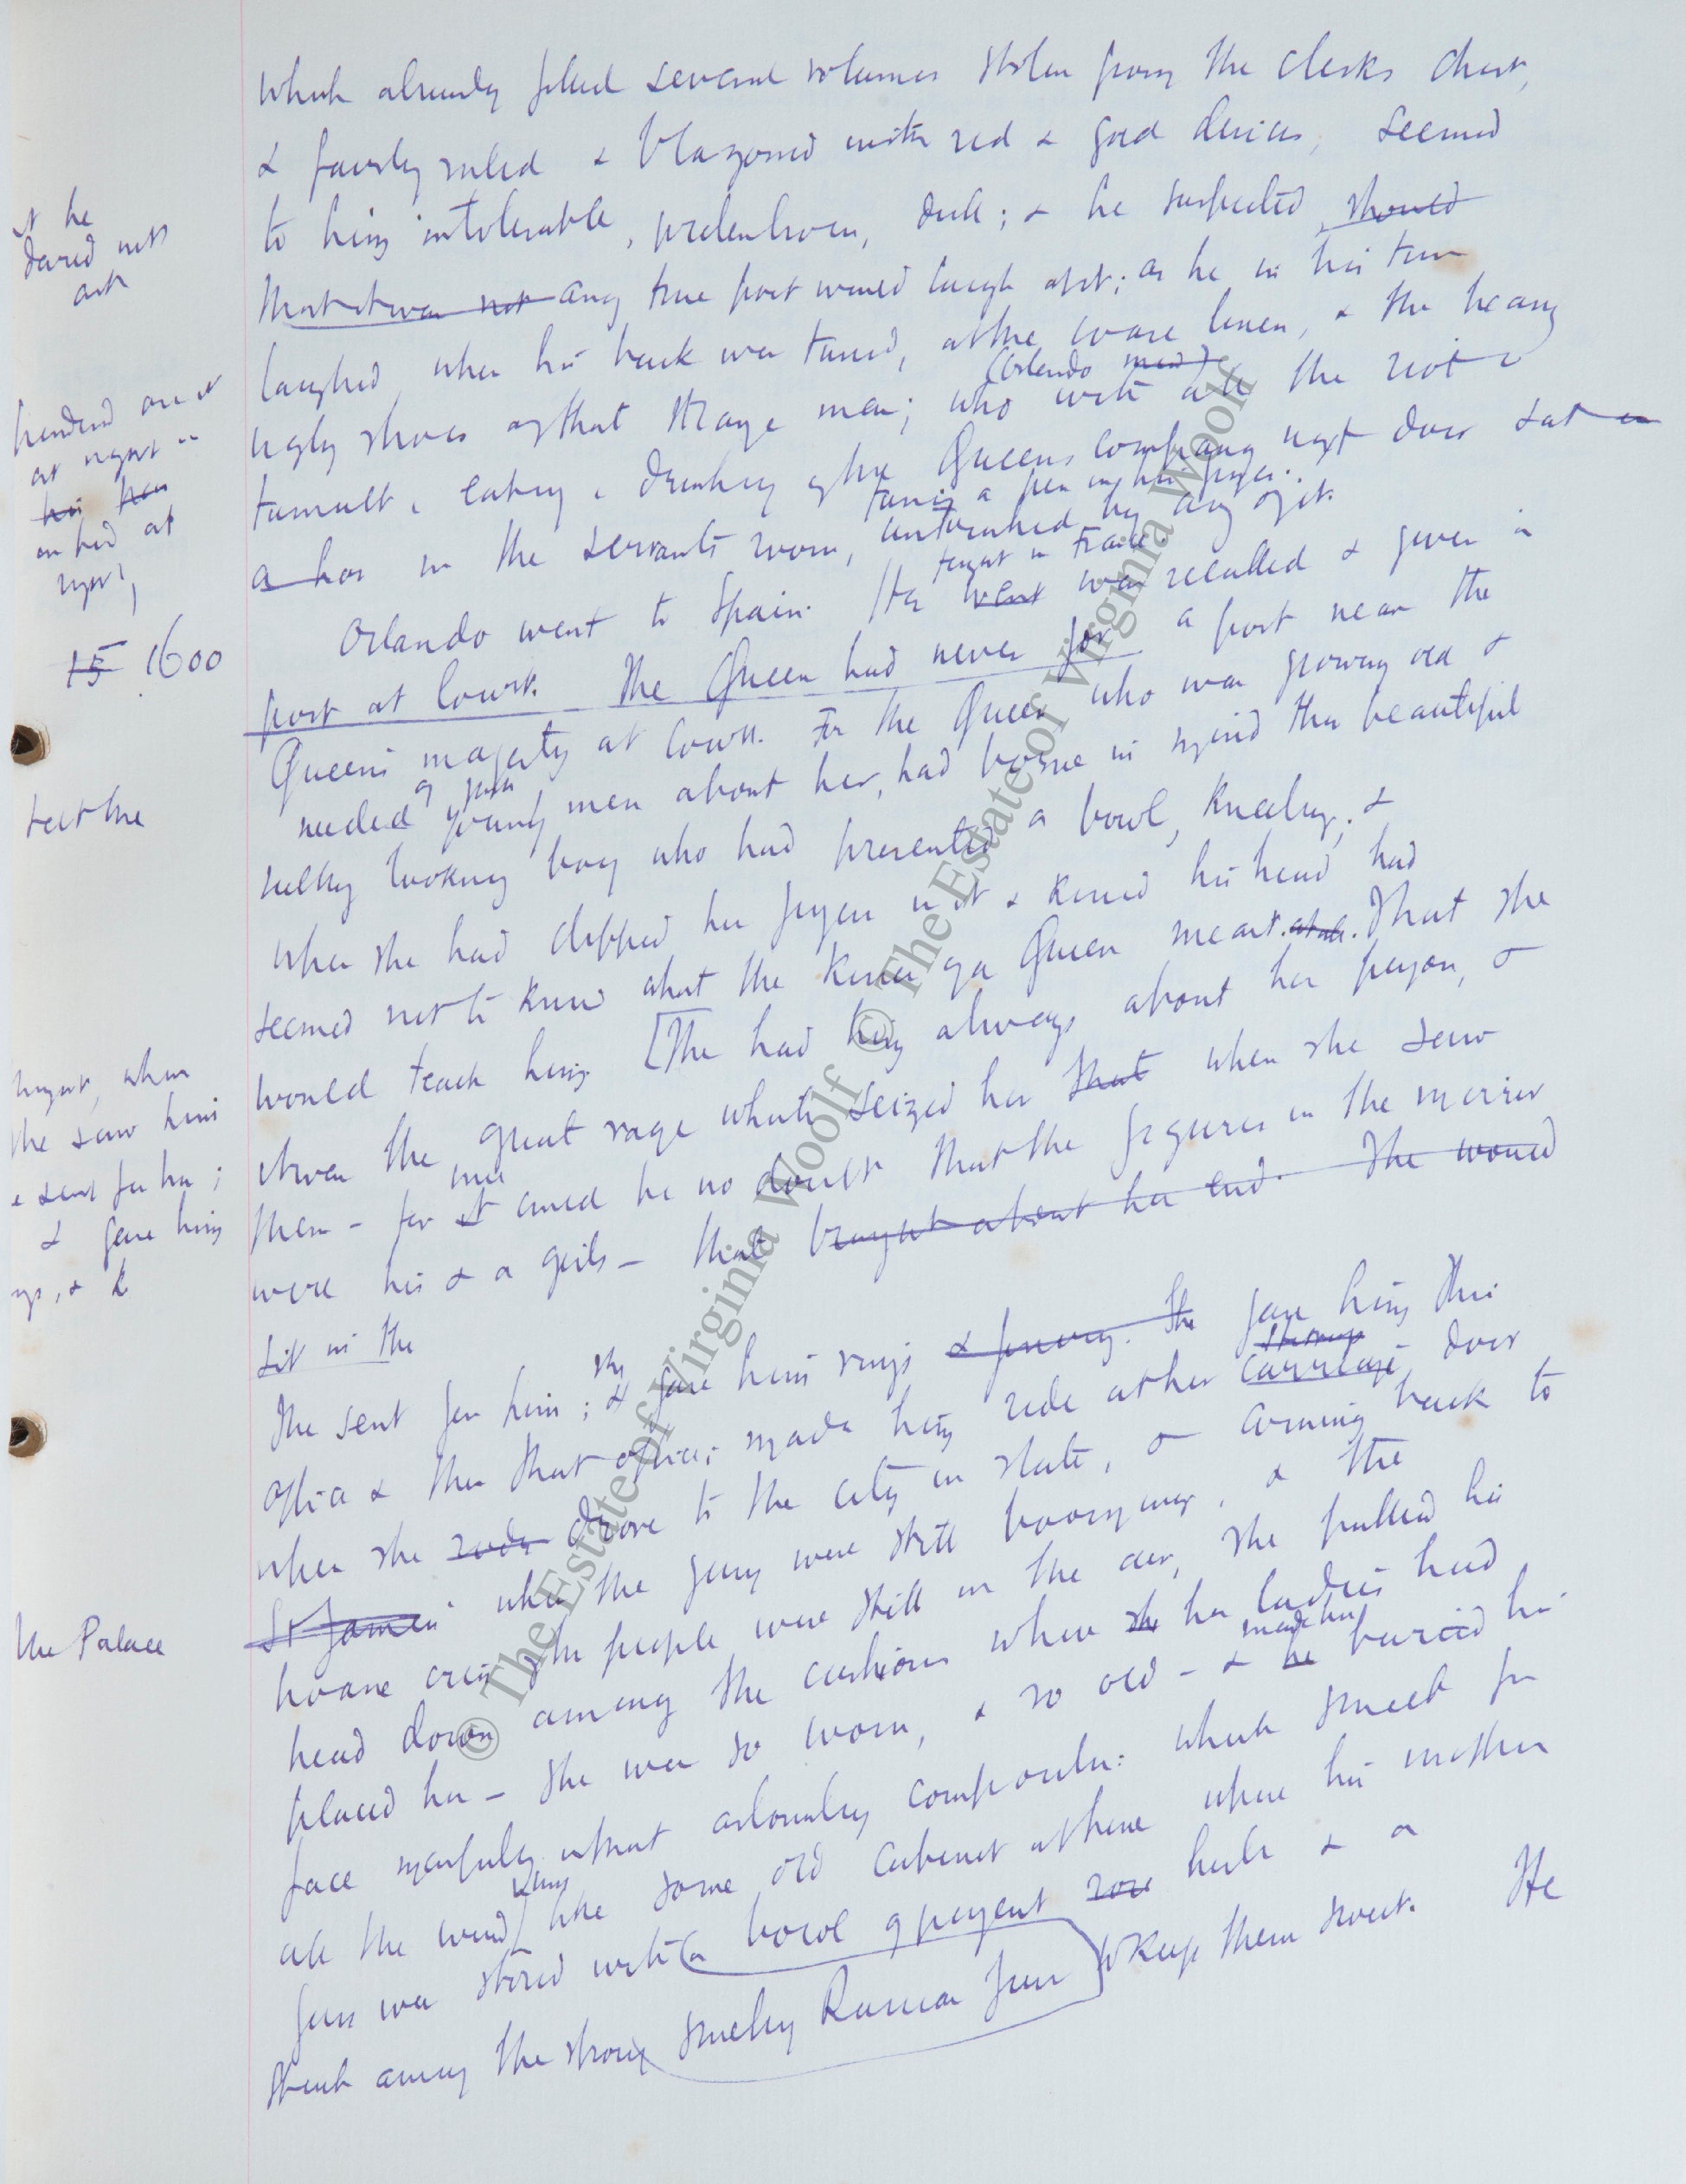 which already filled several volumes stolen from the clerks chest,
& fairly ruled & blazoned with red & gold devices, seemed
to him intolerable, pretentious, dull; & he suspected should
that it was not any true poet would laugh at it; as he in his turn
laughed when his back was turned, at the coarse linen, & the heavy
(Orlando mean)
ugly shoes of that strange man; who with all the riot &
tumult, eating, drinking of the Queens company next door sat in
turning a pen in his fingers.
a has in the servants room, untouched by any of it.
fought in France.
Orlando went to Spain. He went was recalled & given a
post at Court. The Queen had never for a post near the
Queen's majesty at Court. For the Queen who was growing old &
needed young men about her, had borne in mind the beautiful
sulky looking boy who had presented a bowl, kneeling, &
when she had dipped her fingers in it & kissed his head had
seemed not to know what the kiss of a Queen meant at all. That she
would teach him. [She had him always about her person, &
it was the great rage which seized her that when she saw
them - for it could be no doubt that the figures in the mirror
were his & a girls - that brought about her end. She would
sit in the
She sent for him; & gave him rings & finery. She gave him this
stirrup
office & then that office; made him ride at her carriage door
when she rode drove to the city in state, & coming back to
St James' when the guns were still booming, & the
hoarse cries of the people were still in the air, she pulled his
head down among the cushions where she her ladies had
made him
placed her - she was so worn, & so old - & he buried his
face manfully in that astonishing composition: which smelt for
all the world like some old cabinet at home where his mother
furs was stored with (a bowl of pungent rose herbs & a
stuck among the strong smelling Russian furs to keep them sweet. He
it he
dared not
ask
at night
his
in bed at
night,
15 1600
that the
night, when
she saw him
sent for her;
& gave him
the Palace
© The Estate of Virginia Woolf © The Estate of Virginia Woolf